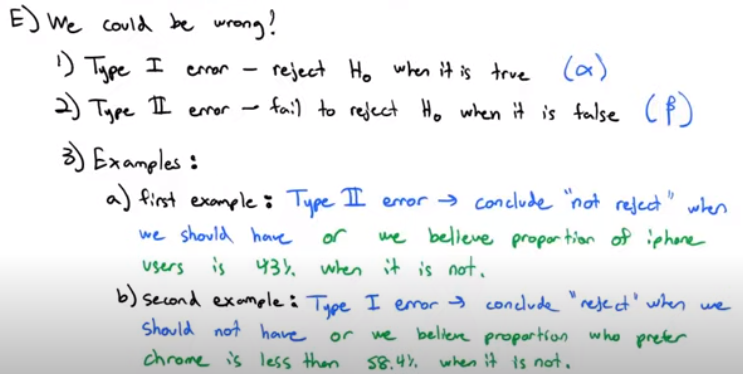 E) We could be wrong!
1) Type I error – reject H₀ when it is true (α)
2) Type II error – fail to reject H₀ when it is false (β)
3) Examples:
a) first example: Type II error → conclude "not reject" when
we should have or we believe proportion of iphone
users is 43% when it is not.
b) second example: Type I error → conclude "reject" when we
should not have or we believe proportion who prefer
chrome is less than 58.4% when it is not.